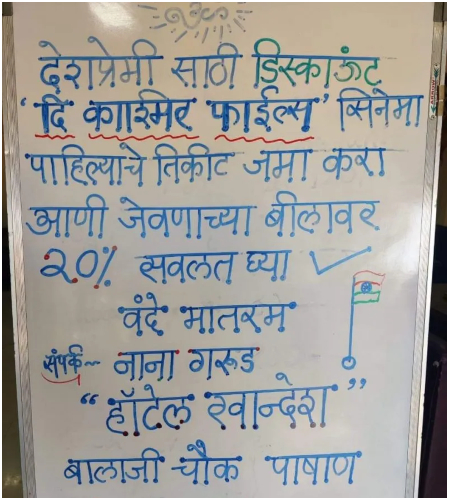 ॐ
देशप्रेमी साठी डिस्काऊंट
'दि काश्मिर फाईल्स' सिनेमा
पाहिल्याचे तिकीट जमा करा
आणी जेवणाच्या बीलावर
२०% सवलत घ्या
वंदे मातरम
संपर्क~ नाना गरूड
"हॉटेल खान्देश"
बालाजी चौक पाषाण